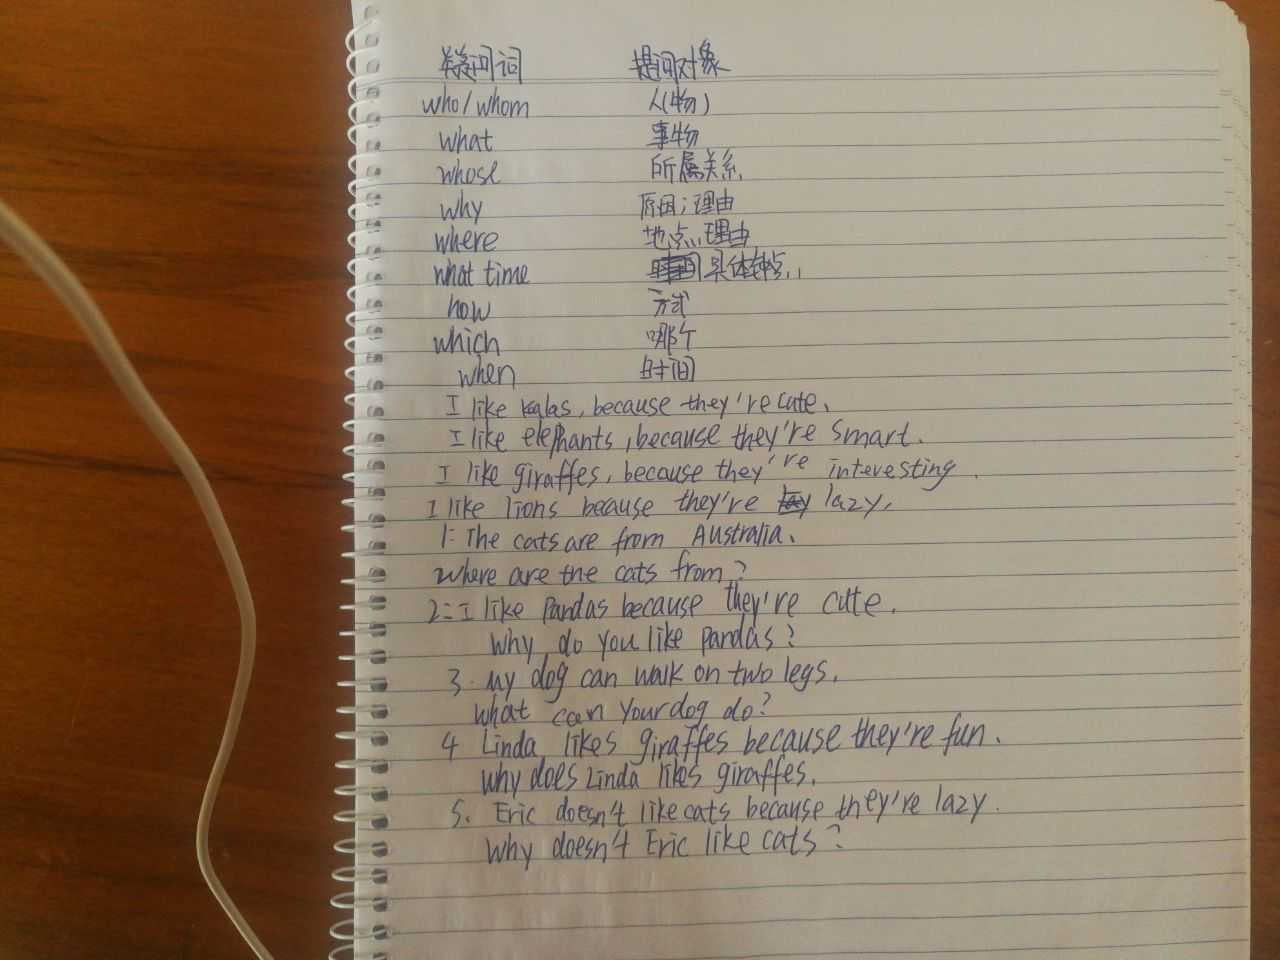 疑问词 提问对象
who/whom 人(物)
what 事物
whose 所属关系
why 原因;理由
where 地点,理由
what time 具体钟点
how 方式
which 哪个
when 时间
I like kalas, because they're cute.
I like elephants, because they're smart.
I like giraffes, because they're interesting.
I like lions because they're lazy.
1: The cats are from Australia.
Where are the cats from?
2: I like Pandas because they're cute.
Why do you like pandas?
3. My dog can walk on two legs.
What can your dog do?
4 Linda likes giraffes because they're fun.
Why does Linda likes giraffes.
5. Eric doesn't like cats because they're lazy.
Why doesn't Eric like cats?